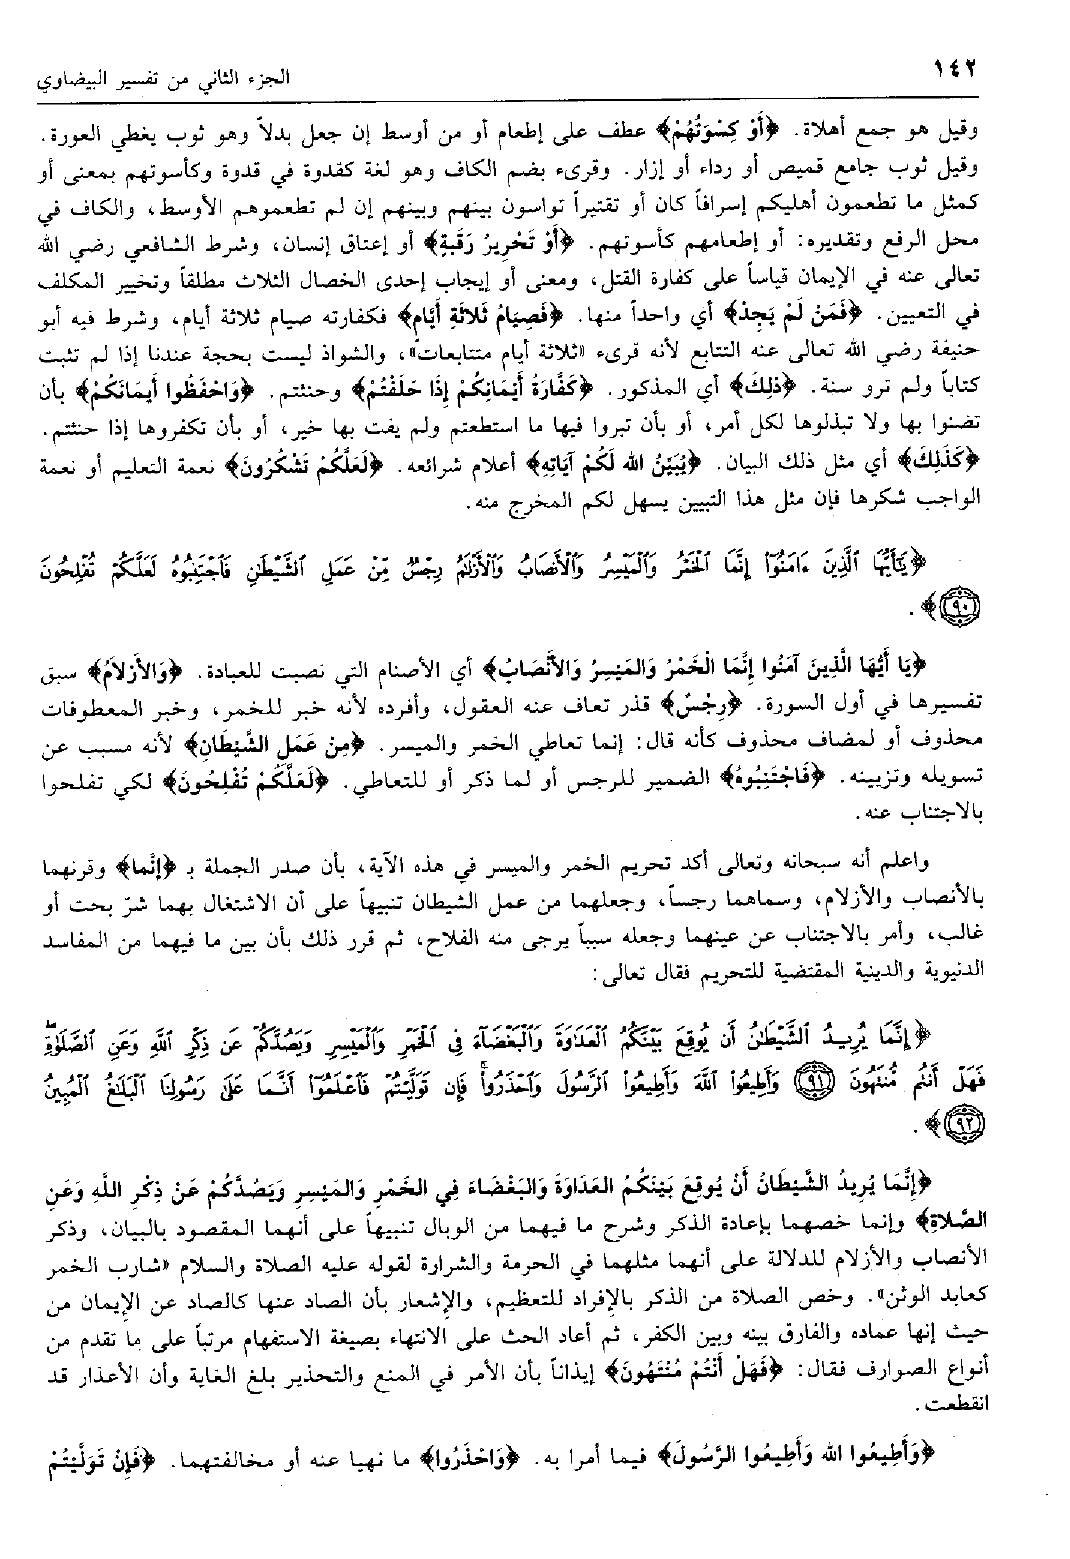 ١٤٢
الجزء الثاني من تفسير البيضاوي
وقيل هو جمع أهلاة. ﴿أَوْ كِسْوَتُهُمْ﴾ عطف على إطعام أو من أوسط إن جعل بدلاً وهو ثوب يغطي العورة.
وقيل ثوب جامع قميص أو رداء أو إزار. وقرىء بضم الكاف وهو لغة كقدوة في قدوة وكأسوتهم بمعنى أو
كمثل ما تطعمون أهليكم إسرافاً كان أو تقتيراً تواسون بينهم وبينهم إن لم تطعموهم الأوسط، والكاف في
محل الرفع وتقديره: أو إطعامهم كأسوتهم. ﴿أَوْ تَحْرِيرُ رَقَبَةٍ﴾ أو إعتاق إنسان، وشرط الشافعي رضي الله
تعالى عنه في الإيمان قياساً على كفارة القتل، ومعنى أو إيجاب إحدى الخصال الثلاث مطلقاً وتخيير المكلف
في التعيين. ﴿فَمَنْ لَمْ يَجِدْ﴾ أي واحداً منها. ﴿فَصِيَامُ ثَلاَثَةِ أَيَّامٍ﴾ فكفارته صيام ثلاثة أيام، وشرط فيه أبو
حنيفة رضي الله تعالى عنه التتابع لأنه قرىء «ثلاثة أيام متتابعات»، والشواذ ليست بحجة عندنا إذا لم تثبت
كتاباً ولم ترو سنة. ﴿ذٰلِكَ﴾ أي المذكور. ﴿كَفَّارَةُ أَيْمَانِكُمْ إِذَا حَلَفْتُمْ﴾ وحنثتم. ﴿وَاحْفَظُوا أَيمَانَكُمْ﴾ بأن
تضنوا بها ولا تبذلوها لكل أمر، أو بأن تبروا فيها ما استطعتم ولم يفت بها خير، أو بأن تكفروها إذا حنثتم.
﴿كَذٰلِكَ﴾ أي مثل ذلك البيان. ﴿يُبَيِّنُ الله لَكُمْ آيَاتِهِ﴾ أعلام شرائعه. ﴿لَعَلَّكُمْ تَشْكُرُونَ﴾ نعمة التعليم أو نعمة
الواجب شكرها فإن مثل هذا التبيين يسهل لكم المخرج منه.
﴿يَٰٓأَيُّهَا ٱلَّذِينَ ءَامَنُوٓاْ إِنَّمَا ٱلْخَمْرُ وَٱلْمَيْسِرُ وَٱلْأَنصَابُ وَٱلْأَزْلَٰمُ رِجْسٌ مِّنْ عَمَلِ ٱلشَّيْطَٰنِ فَٱجْتَنِبُوهُ لَعَلَّكُمْ تُفْلِحُونَ
٩٠﴾.
﴿يَا أَيُّهَا الَّذِينَ آمَنُوا إِنَّمَا الْخَمْرُ وَالمَيْسِرُ وَالأَنْصَابُ﴾ أي الأصنام التي نصبت للعبادة. ﴿وَالأَزْلاَمُ﴾ سبق
تفسيرها في أول السورة. ﴿رِجْسٌ﴾ قذر تعاف عنه العقول، وأفرده لأنه خبر للخمر، وخبر المعطوفات
محذوف أو لمضاف محذوف كأنه قال: إنما تعاطي الخمر والميسر. ﴿مِن عَمَلِ الشَّيْطَانِ﴾ لأنه مسبب عن
تسويله وتزيينه. ﴿فَاجْتَنِبُوهُ﴾ الضمير للرجس أو لما ذكر أو للتعاطي. ﴿لَعَلَّكُمْ تُفْلِحُونَ﴾ لكي تفلحوا
بالاجتناب عنه.
واعلم أنه سبحانه وتعالى أكد تحريم الخمر والميسر في هذه الآية، بأن صدر الجملة بـ ﴿إنَّما﴾ وقرنهما
بالأنصاب والأزلام، وسماهما رجساً، وجعلهما من عمل الشيطان تنبيهاً على أن الاشتغال بهما شرّ بحت أو
غالب، وأمر بالاجتناب عن عينهما وجعله سبباً يرجى منه الفلاح، ثم قرر ذلك بأن بين ما فيهما من المفاسد
الدنيوية والدينية المقتضية للتحريم فقال تعالى:
﴿إِنَّمَا يُرِيدُ ٱلشَّيْطَٰنُ أَن يُوقِعَ بَيْنَكُمُ ٱلْعَدَٰوَةَ وَٱلْبَغْضَآءَ فِى ٱلْخَمْرِ وَٱلْمَيْسِرِ وَيَصُدَّكُمْ عَن ذِكْرِ ٱللَّهِ وَعَنِ ٱلصَّلَوٰةِ ۖ
فَهَلْ أَنتُم مُّنتَهُونَ ٩١ وَأَطِيعُواْ ٱللَّهَ وَأَطِيعُواْ ٱلرَّسُولَ وَٱحْذَرُواْ ۚ فَإِن تَوَلَّيْتُمْ فَٱعْلَمُوٓاْ أَنَّمَا عَلَىٰ رَسُولِنَا ٱلْبَلَٰغُ ٱلْمُبِينُ
٩٢﴾.
﴿إِنَّمَا يُرِيدُ الشَّيْطَانُ أَنْ يُوقِعَ بَيْنَكُمُ العَدَاوَةَ وَالبَغْضَاءَ فِي الخَمْرِ وَالمَيْسِرِ وَيَصُدَّكُمْ عَنْ ذِكْرِ اللَّهِ وَعَنِ
الصَّلاَةِ﴾ وإنما خصهما بإعادة الذكر وشرح ما فيهما من الوبال تنبيهاً على أنهما المقصود بالبيان، وذكر
الأنصاب والأزلام للدلالة على أنهما مثلهما في الحرمة والشرارة لقوله عليه الصلاة والسلام «شارب الخمر
كعابد الوثن». وخص الصلاة من الذكر بالإفراد للتعظيم، والإشعار بأن الصاد عنها كالصاد عن الإيمان من
حيث إنها عماده والفارق بينه وبين الكفر، ثم أعاد الحث على الانتهاء بصيغة الاستفهام مرتباً على ما تقدم من
أنواع الصوارف فقال: ﴿فَهَلْ أَنْتُمْ مُنْتَهُونَ﴾ إيذاناً بأن الأمر في المنع والتحذير بلغ الغاية وأن الأعذار قد
انقطعت.
﴿وَأَطِيعُوا الله وَأَطِيعُوا الرَّسُولَ﴾ فيما أمرا به. ﴿وَاحْذَرُوا﴾ ما نهيا عنه أو مخالفتهما. ﴿فَإِنْ تَوَلَّيْتُمْ